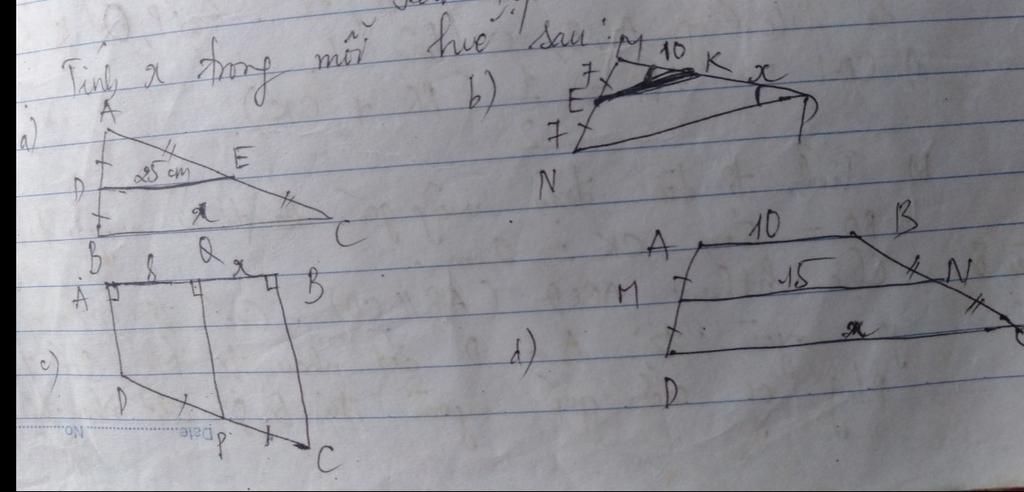 Tính x trong mỗi hình sau:
a)
A
D
25 cm
E
x
B
C
b)
M
7
10
K
x
E
7
P
N
c)
A
8
Q
x
B
D
P
C
d)
A
10
B
M
15
N
x
D
C
No.
Date